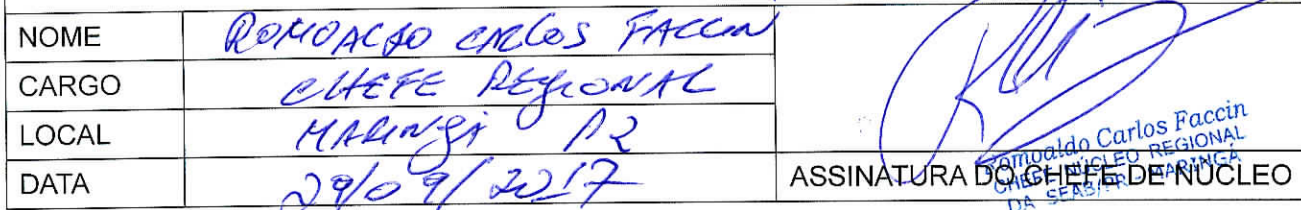 NOME ROMOALDO CARLOS FACCIN
CARGO CHEFE REGIONAL
LOCAL MARINGÁ PR
DATA 29/09/2017
Romoaldo Carlos Faccin
CHEFE NÚCLEO REGIONAL
DA SEAB/PR - MARINGÁ
ASSINATURA DO CHEFE DE NÚCLEO